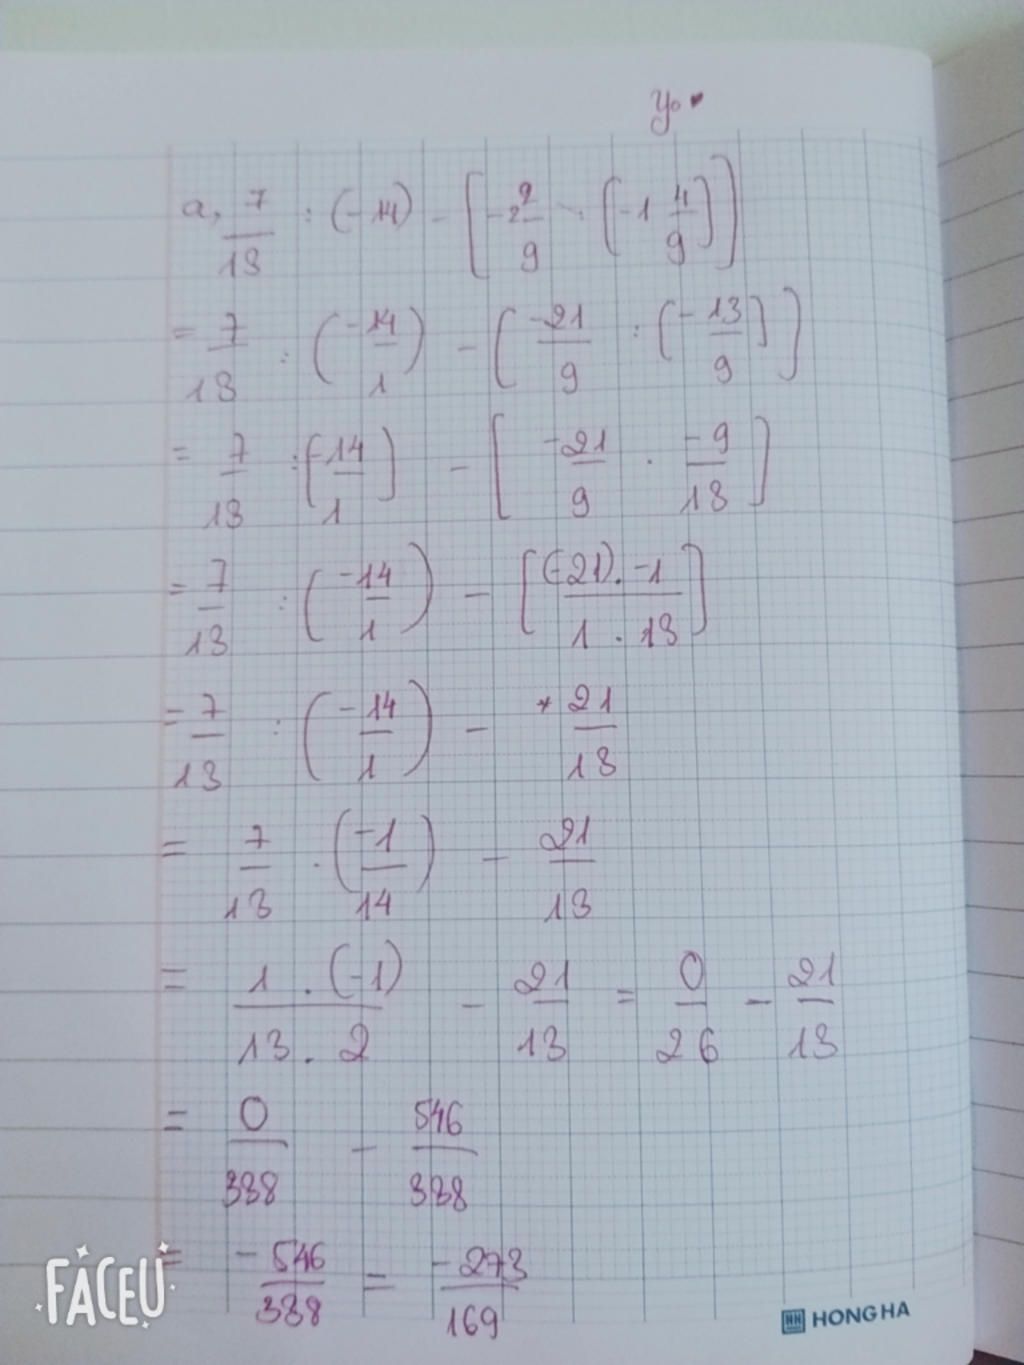 yo ♥
a, 7/13 : (-14) - [-2 2/9 : [-1 4/9]]
= 7/13 : (-14/1) - [-21/9 : [-13/9]]
= 7/13 : [-14/1] - [-21/9 . -9/13]
= 7/13 : (-14/1) - [(-21) . -1 / 1 . 13]
= 7/13 : (-14/1) - + 21/13
= 7/13 . (-1/14) - 21/13
= 1 . (-1) / 13 . 2 - 21/13 = 0/26 - 21/13
= 0/338 - 546/338
= -546/338 = -273/169
FACEU
HONG HA